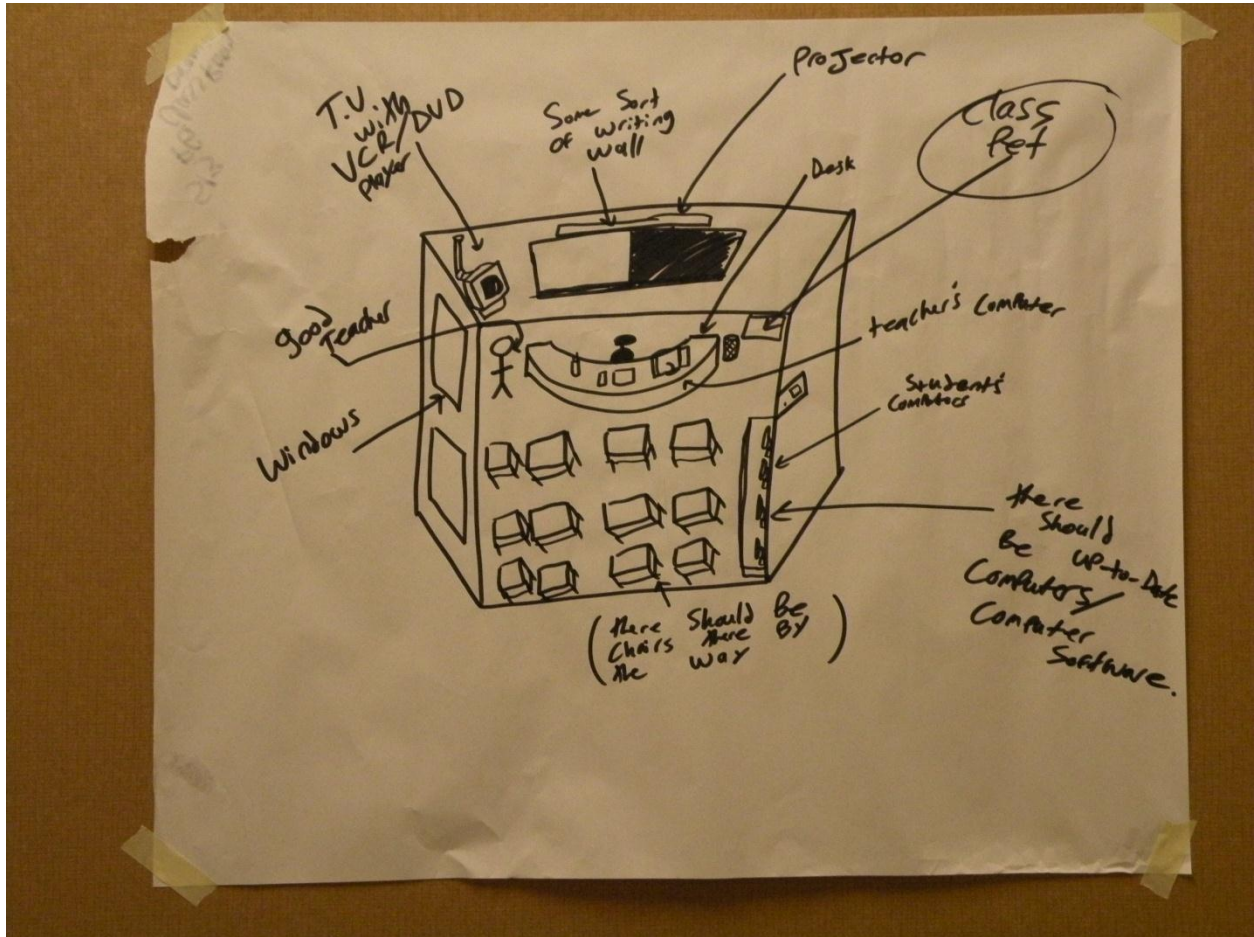 Projector
T.V. with
VCR/DVD
player
Some Sort
of writing
wall
class
Pet
Desk
good
Teacher
teacher's Computer
Students'
Computers
Windows
there
Should
Be up-to-Date
Computers/
Computer
Software.
(there Should Be
Chairs there By
the way)